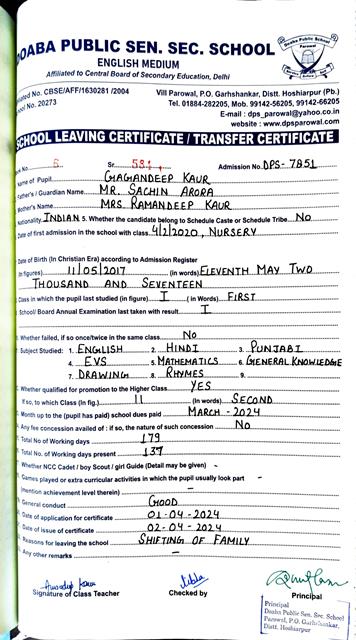 DOABA PUBLIC SEN. SEC. SCHOOL
ENGLISH MEDIUM
Affiliated to Central Board of Secondary Education, Delhi
No. CBSE/AFF/1630281 /2004
School No. 20273
Vill Parowal, P.O. Garhshankar, Distt. Hoshiarpur (Pb.)
Tel. 01884-282205, Mob. 99142-56205, 99142-66205
E-mail : dps_parowal@yahoo.co.in
website : www.dpsparowal.com
Doaba Public School
Parowal
SCHOOL LEAVING CERTIFICATE / TRANSFER CERTIFICATE
No. 6 Sr. 581 Admission No. DPS-7851
Name of Pupil GAGANDEEP KAUR
Father's / Guardian Name MR. SACHIN ARORA
Mother's Name MRS. RAMANDEEP KAUR
Nationality INDIAN 5. Whether the candidate belong to Schedule Caste or Schedule Tribe No
Date of first admission in the school with class 4/2/2020, NURSERY
Date of Birth (In Christian Era) according to Admission Register
(in figures) 11/05/2017 (in words) ELEVENTH MAY TWO
THOUSAND AND SEVENTEEN
Class in which the pupil last studied (in figure) I (in Words) FIRST
School/ Board Annual Examination last taken with result I
Whether failed, if so once/twice in the same class No
Subject Studied: 1. ENGLISH 2. HINDI 3. PUNJABI
4. EVS 5. MATHEMATICS 6. GENERAL KNOWLEDGE
7. DRAWING 8. RHYMES 9.
Whether qualified for promotion to the Higher Class YES
If so, to which Class (In fig.) II (In words) SECOND
Month up to the (pupil has paid) school dues paid MARCH - 2024
Any fee concession availed : if so, the nature of such concession No
Total No. of Working days 179
Total No. of Working days present 137
Whether NCC Cadet / boy Scout / girl Guide (Detail may be given) -
Games played or extra curricular activities in which the pupil usually look part -
(mention achievement level therein)
General conduct GOOD
Date of application for certificate 01-04-2024
Date of issue of certificate 02-04-2024
Reasons for leaving the school SHIFTING OF FAMILY
Any other remarks -
Signature of Class Teacher Checked by Principal
Principal
Doaba Public Sen. Sec. School
Parowal, P.O. Garhshankar,
Distt. Hoshiarpur